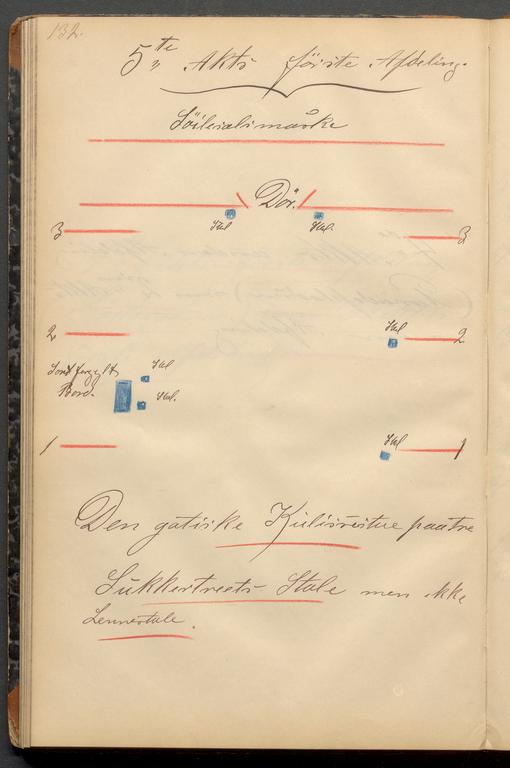 132.
5te Akts første Afdeling.
Söileralimaske
Dör.
Stol Stol.
3 3
2 Stol 2
Sort forgylt Stol
Bord. Stol.
1 Stol 1
Den gotiske Kulissestue paatre
Sukkertræets Stole men ikke
Lennestole.